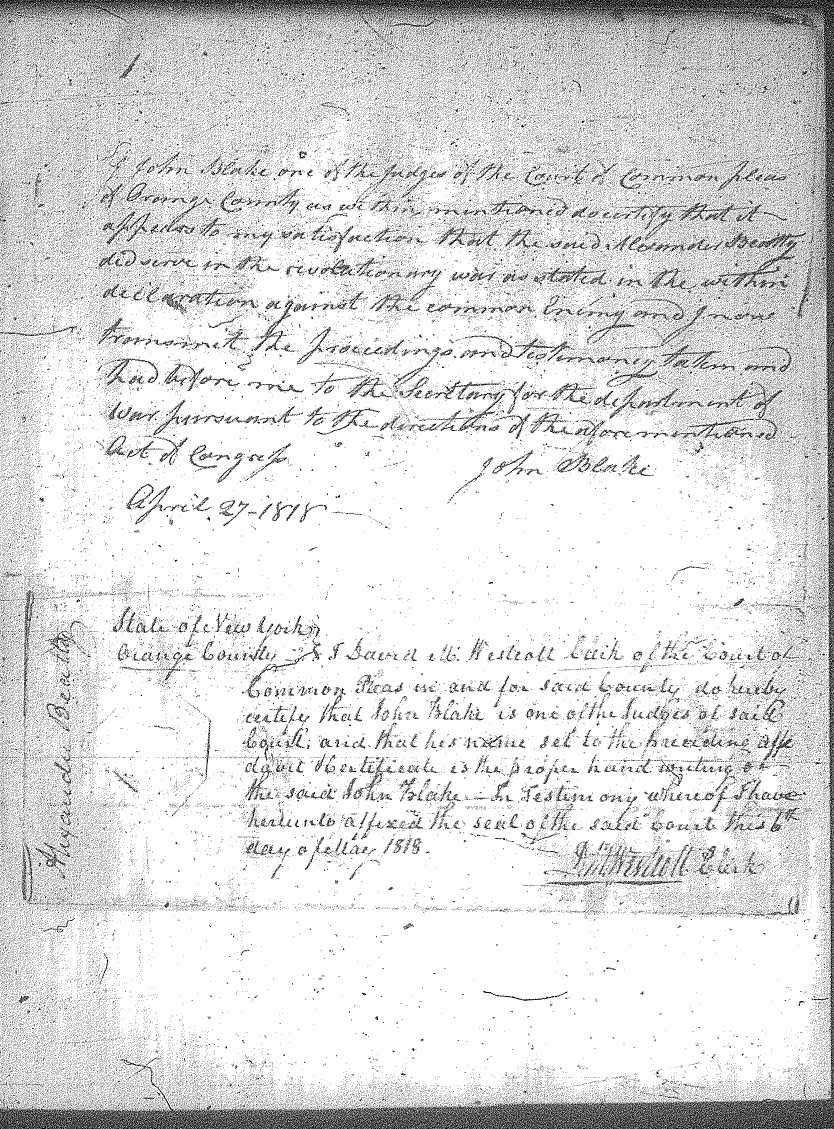 I John Blake one of the Judges of the Court of Common pleas
of Orange County as within mentioned do certify that it
appears to my satisfaction that the said Alexander Beatty
did serve in the revolutionary war as stated in the within
declaration against the common Enemy and I now
transmit the proceedings and testimony taken and
had before me to the Secretary for the department of
War pursuant to the directions of the aforementioned
Act of Congress
John Blake
April 27-1818
State of New York
Orange County I David M. Westcott Clerk of the Court of
Common Pleas in and for said County do hereby
certify that John Blake is one of the Judges of said
Court, and that his name set to the preceding affi
davit & Certificate is the proper hand writing of
the said John Blake - In Testimony whereof I have
hereunto affixed the seal of the said Court this 6th
day of May 1818.
Westcott Clerk
Alexander Beatty